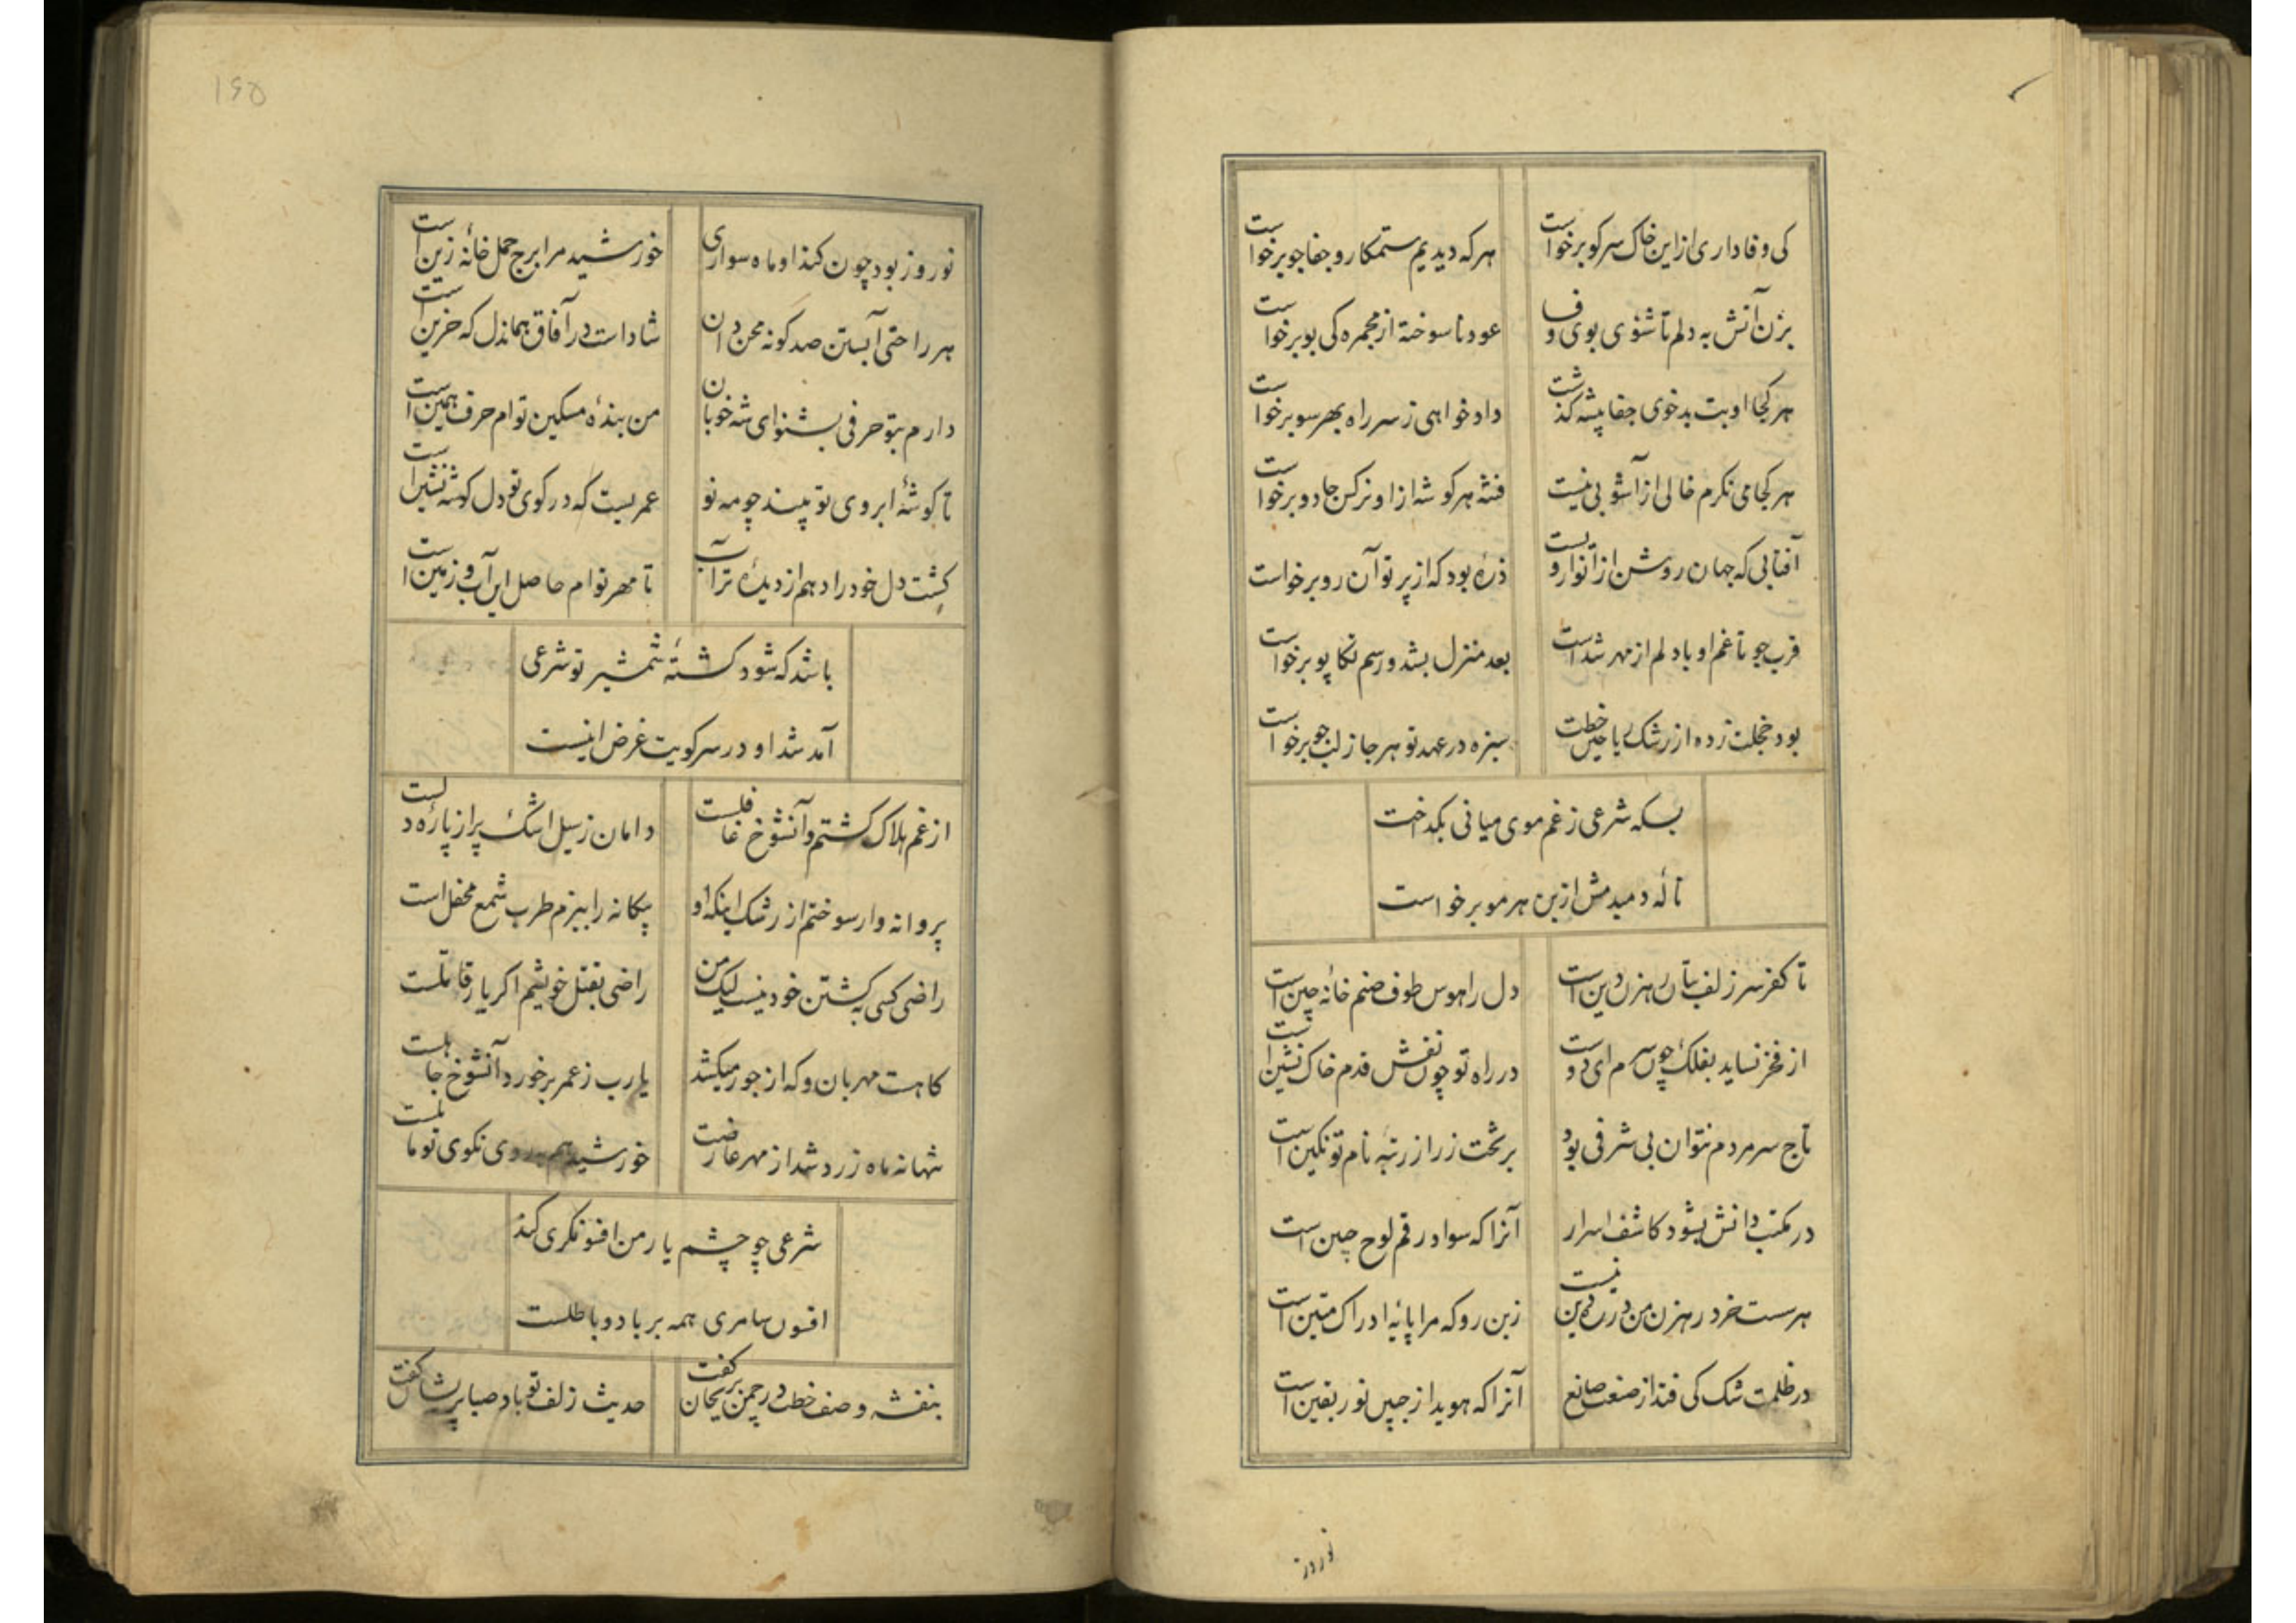 کی وفاداری ازین خاک سر کو برخواست
هر که دیدیم ستمکار و جفاجو برخواست
بزن آتش به دلم تا شنوی بوی وفا
عود ناسوخته از مجمره کی بو برخواست
هر کجا او بت بدخوی جفا پیشه گذشت
دادخواهی ز سر راه بهر سو برخواست
هر کجا می نکرم خالی از آشوبی نیست
فتنه هر کوشه ازاو نرکس جادو برخواست
آفتابی که جهان روشن از انوار ویست
ذره بود که از پرتو آن رو برخواست
قرب جو تا غم او با دلم از مهر شداست
بعد منزل بشد و رسم تکاپو برخواست
بود خجلت زده از رشک ریاحین خطت
سبزه در عهد تو هر جا ز لب جو برخواست
بسکه شرعی ز غم موی میانی بکداخت
ناله دمبدمش از بن هر مو برخواست
تا کفر سر زلف بتان رهزن دین است
دل را هوس طوف صنم خانه چین است
از فخر نساید بفلک چون سرم ای دوست
در راه تو چون نقش قدم خاک نشین است
تاج سر مردم نتوان بی شرفی بود
بر تخت زر از رتبه نام تو نکین است
در مکتب دانش بشود کاشف اسرار
آنرا که سواد رقم لوح جبین است
هر سست خرد رهزن من در ره دین نیست
زین رو که مرا پایه ادراک متین است
در ظلمت شک کی فتد از صنعت صانع
آنرا که هویدا ز جبین نور یقین است
نوروز
۱۶۵
نوروز بود چون کند او ماه سواری
خورشید مرا برج حمل خانه زین است
هر راحتی آبستن صد گونه محن دان
شادات در آفاق هماندل که حزین است
دارم بتو حرفی بشنو ای شه خوبان
من بنده مسکین توام حرف همین است
تا کوشه ابروی تو بیند چو مه نو
عمریست که در کوی تو دل کوشه نشین است
کشت دل خود را دهم از دیده تر آب
تا مهر توام حاصل این آب و زمین است
باشد که شود کشته شمشیر تو شرعی
آمد شد او در سر کویت غرض اینست
از غم هلاک کشتم و آنشوخ غافلست
دامان ز سیل اشک پر از پاره دلست
پروانه وار سوختم از رشک اینکه او
بیکانه را ببزم طرب شمع محفل است
راضی کسی به کشتن خود نیست لیک من
راضی بقتل خویشم اکر یار قاتلست
کاهست مهربان و که از جور میکشد
یارب ز عمر برخورد آنشوخ جاهلست
تنها نه ماه زرد شد از مهر عارضت
خورشید هم بروی نکوی تو مایلست
شرعی چو چشم یار من افسونکری کند
افسون سامری همه بر باد و باطلست
بنفشه وصف خطت در چمن بریحان گفت
حدیث زلف تو باد صبا پریشان گفت